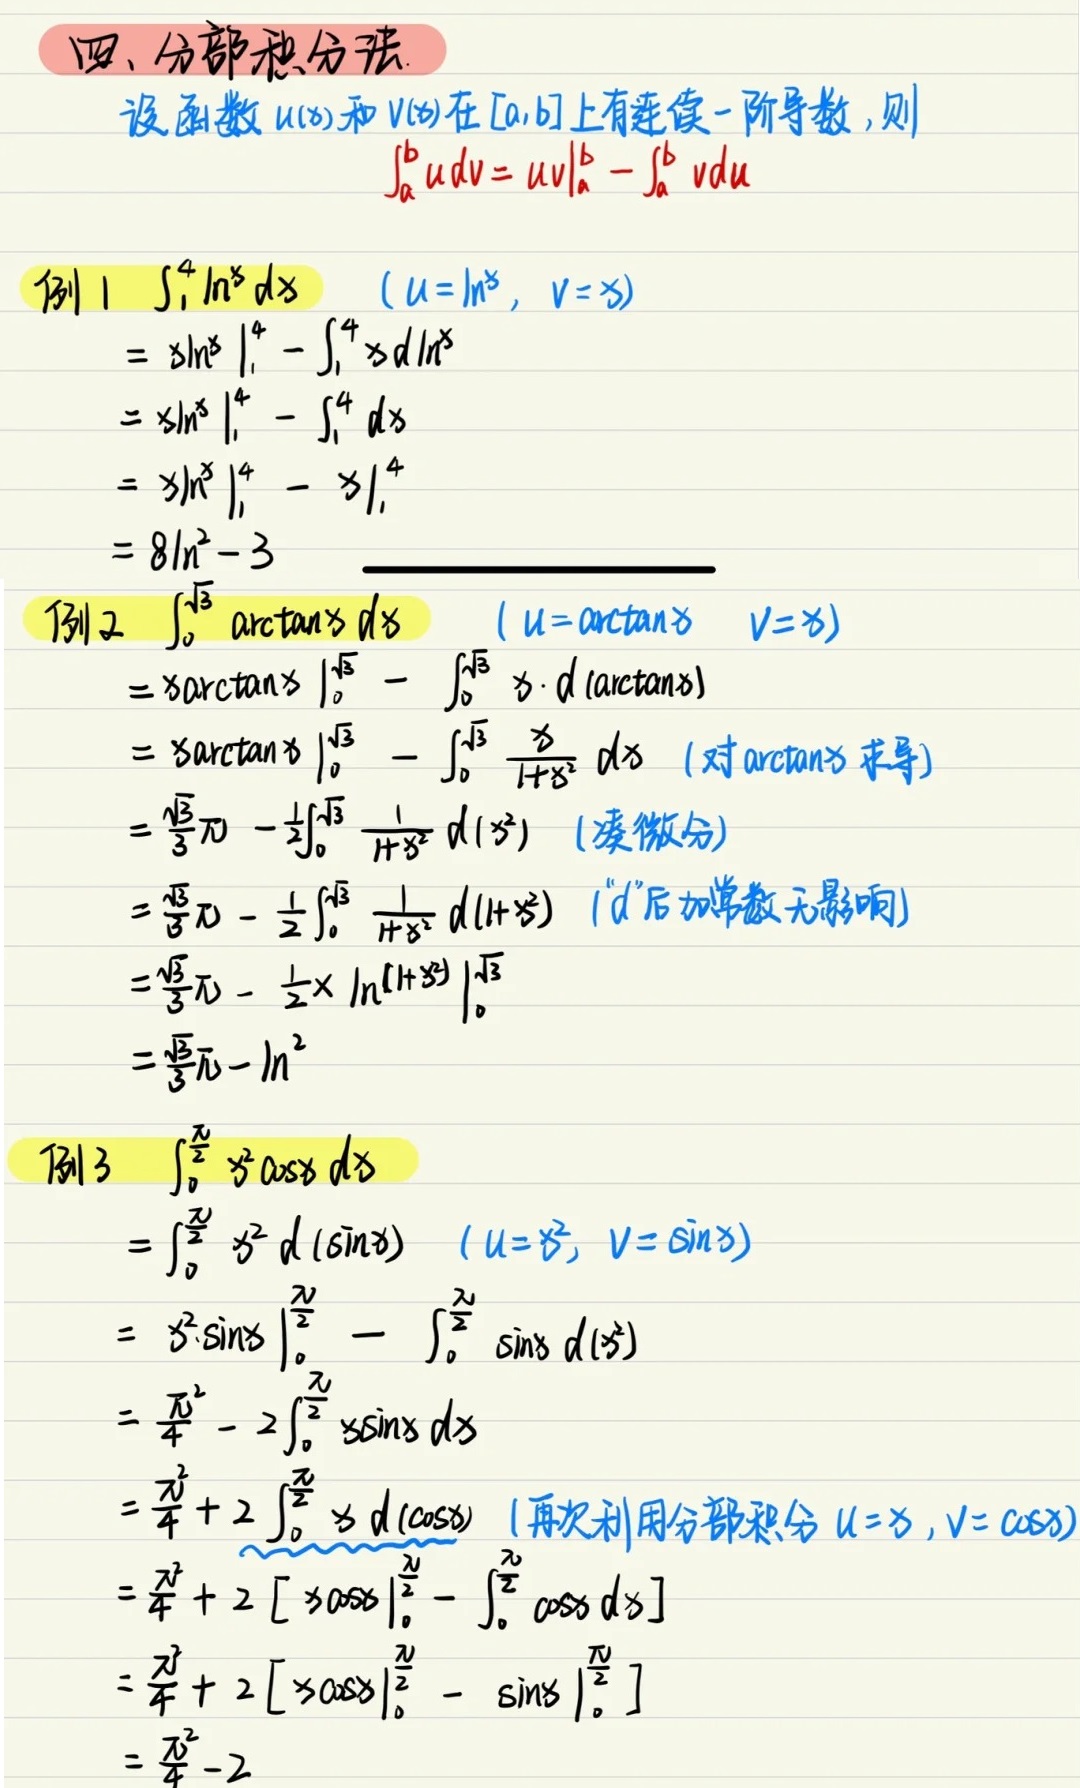 四、分部积分法.
设函数 u(x) 和 v(x) 在 [a,b] 上有连续一阶导数,则
∫ₐᵇ u dv = uv|ₐᵇ − ∫ₐᵇ v du
例1 ∫₁⁴ lnˣ dx (u=lnˣ, v=x)
= xlnˣ |₁⁴ − ∫₁⁴ x d lnˣ
= xlnˣ |₁⁴ − ∫₁⁴ dx
= xlnˣ |₁⁴ − x|₁⁴
= 8ln² − 3
例2 ∫₀^√3 arctanx dx (u=arctanx v=x)
= xarctanx |₀^√3 − ∫₀^√3 x·d(arctanx)
= xarctanx |₀^√3 − ∫₀^√3 x/(1+x²) dx (对arctanx求导)
= √3/3 π − 1/2 ∫₀^√3 1/(1+x²) d(x²) (凑微分)
= √3/3 π − 1/2 ∫₀^√3 1/(1+x²) d(1+x²) ("d"后加常数无影响)
= √3/3 π − 1/2 × ln^(1+x²) |₀^√3
= √3/3 π − ln²
例3 ∫₀^(π/2) x² cosx dx
= ∫₀^(π/2) x² d(sinx) (u=x², v=sinx)
= x²·sinx |₀^(π/2) − ∫₀^(π/2) sinx d(x²)
= π²/4 − 2∫₀^(π/2) xsinx dx
= π²/4 + 2∫₀^(π/2) x d(cosx) (再次利用分部积分 u=x, v=cosx)
= π²/4 + 2[xcosx|₀^(π/2) − ∫₀^(π/2) cosx dx]
= π²/4 + 2[xcosx|₀^(π/2) − sinx |₀^(π/2)]
= π²/4 − 2